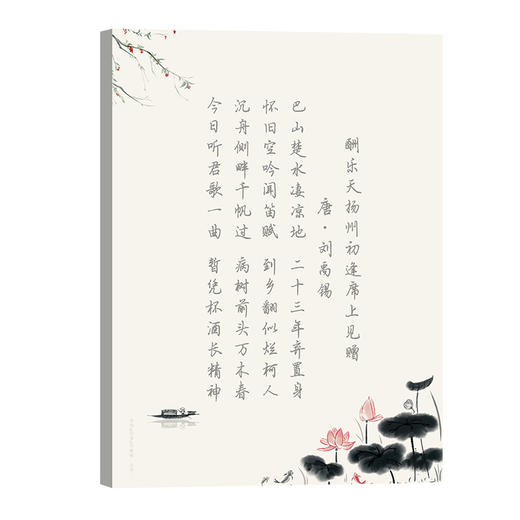 酬乐天扬州初逢席上见赠
唐·刘禹锡
巴山楚水凄凉地 二十三年弃置身
怀旧空吟闻笛赋 到乡翻似烂柯人
沉舟侧畔千帆过 病树前头万木春
今日听君歌一曲 暂凭杯酒长精神